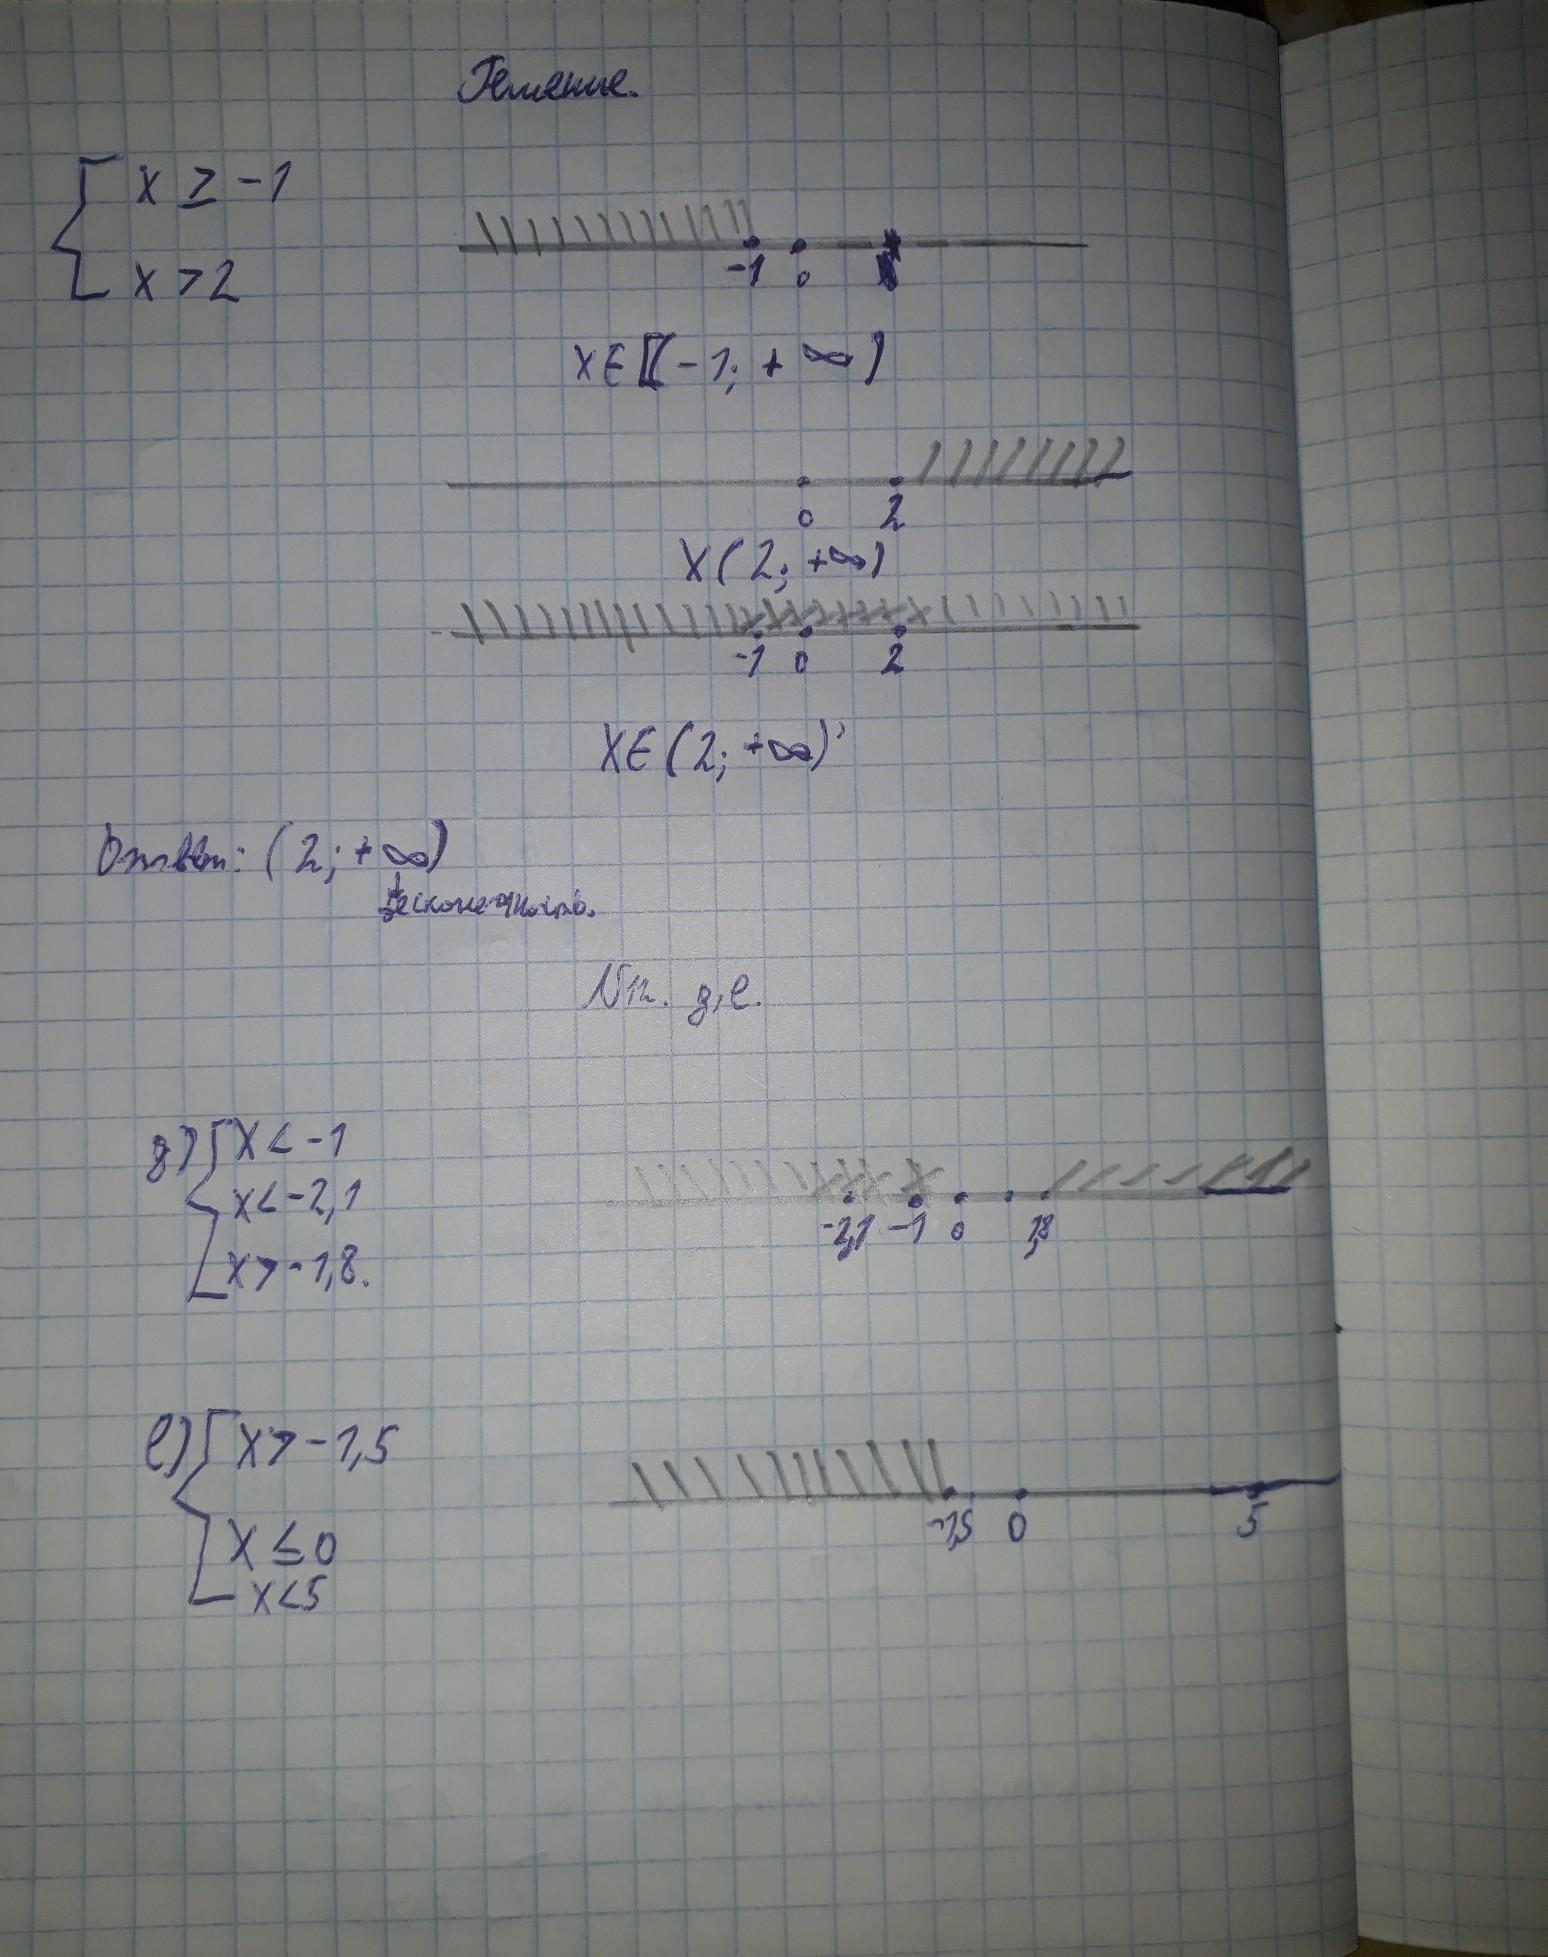 Решение.
x ≥ -1
x > 2
-1 0
x∈[(-1; +∞)
0 2
x(2; +∞)
-1 0 2
x∈(2; +∞)
Ответ: (2; +∞)
бесконечность.
N12. д,е.
д) x < -1
x < -2,1
x > -1,8.
-2,1 -1 0 1,8
е) x > -1,5
x ≤ 0
x < 5
-1,5 0 5